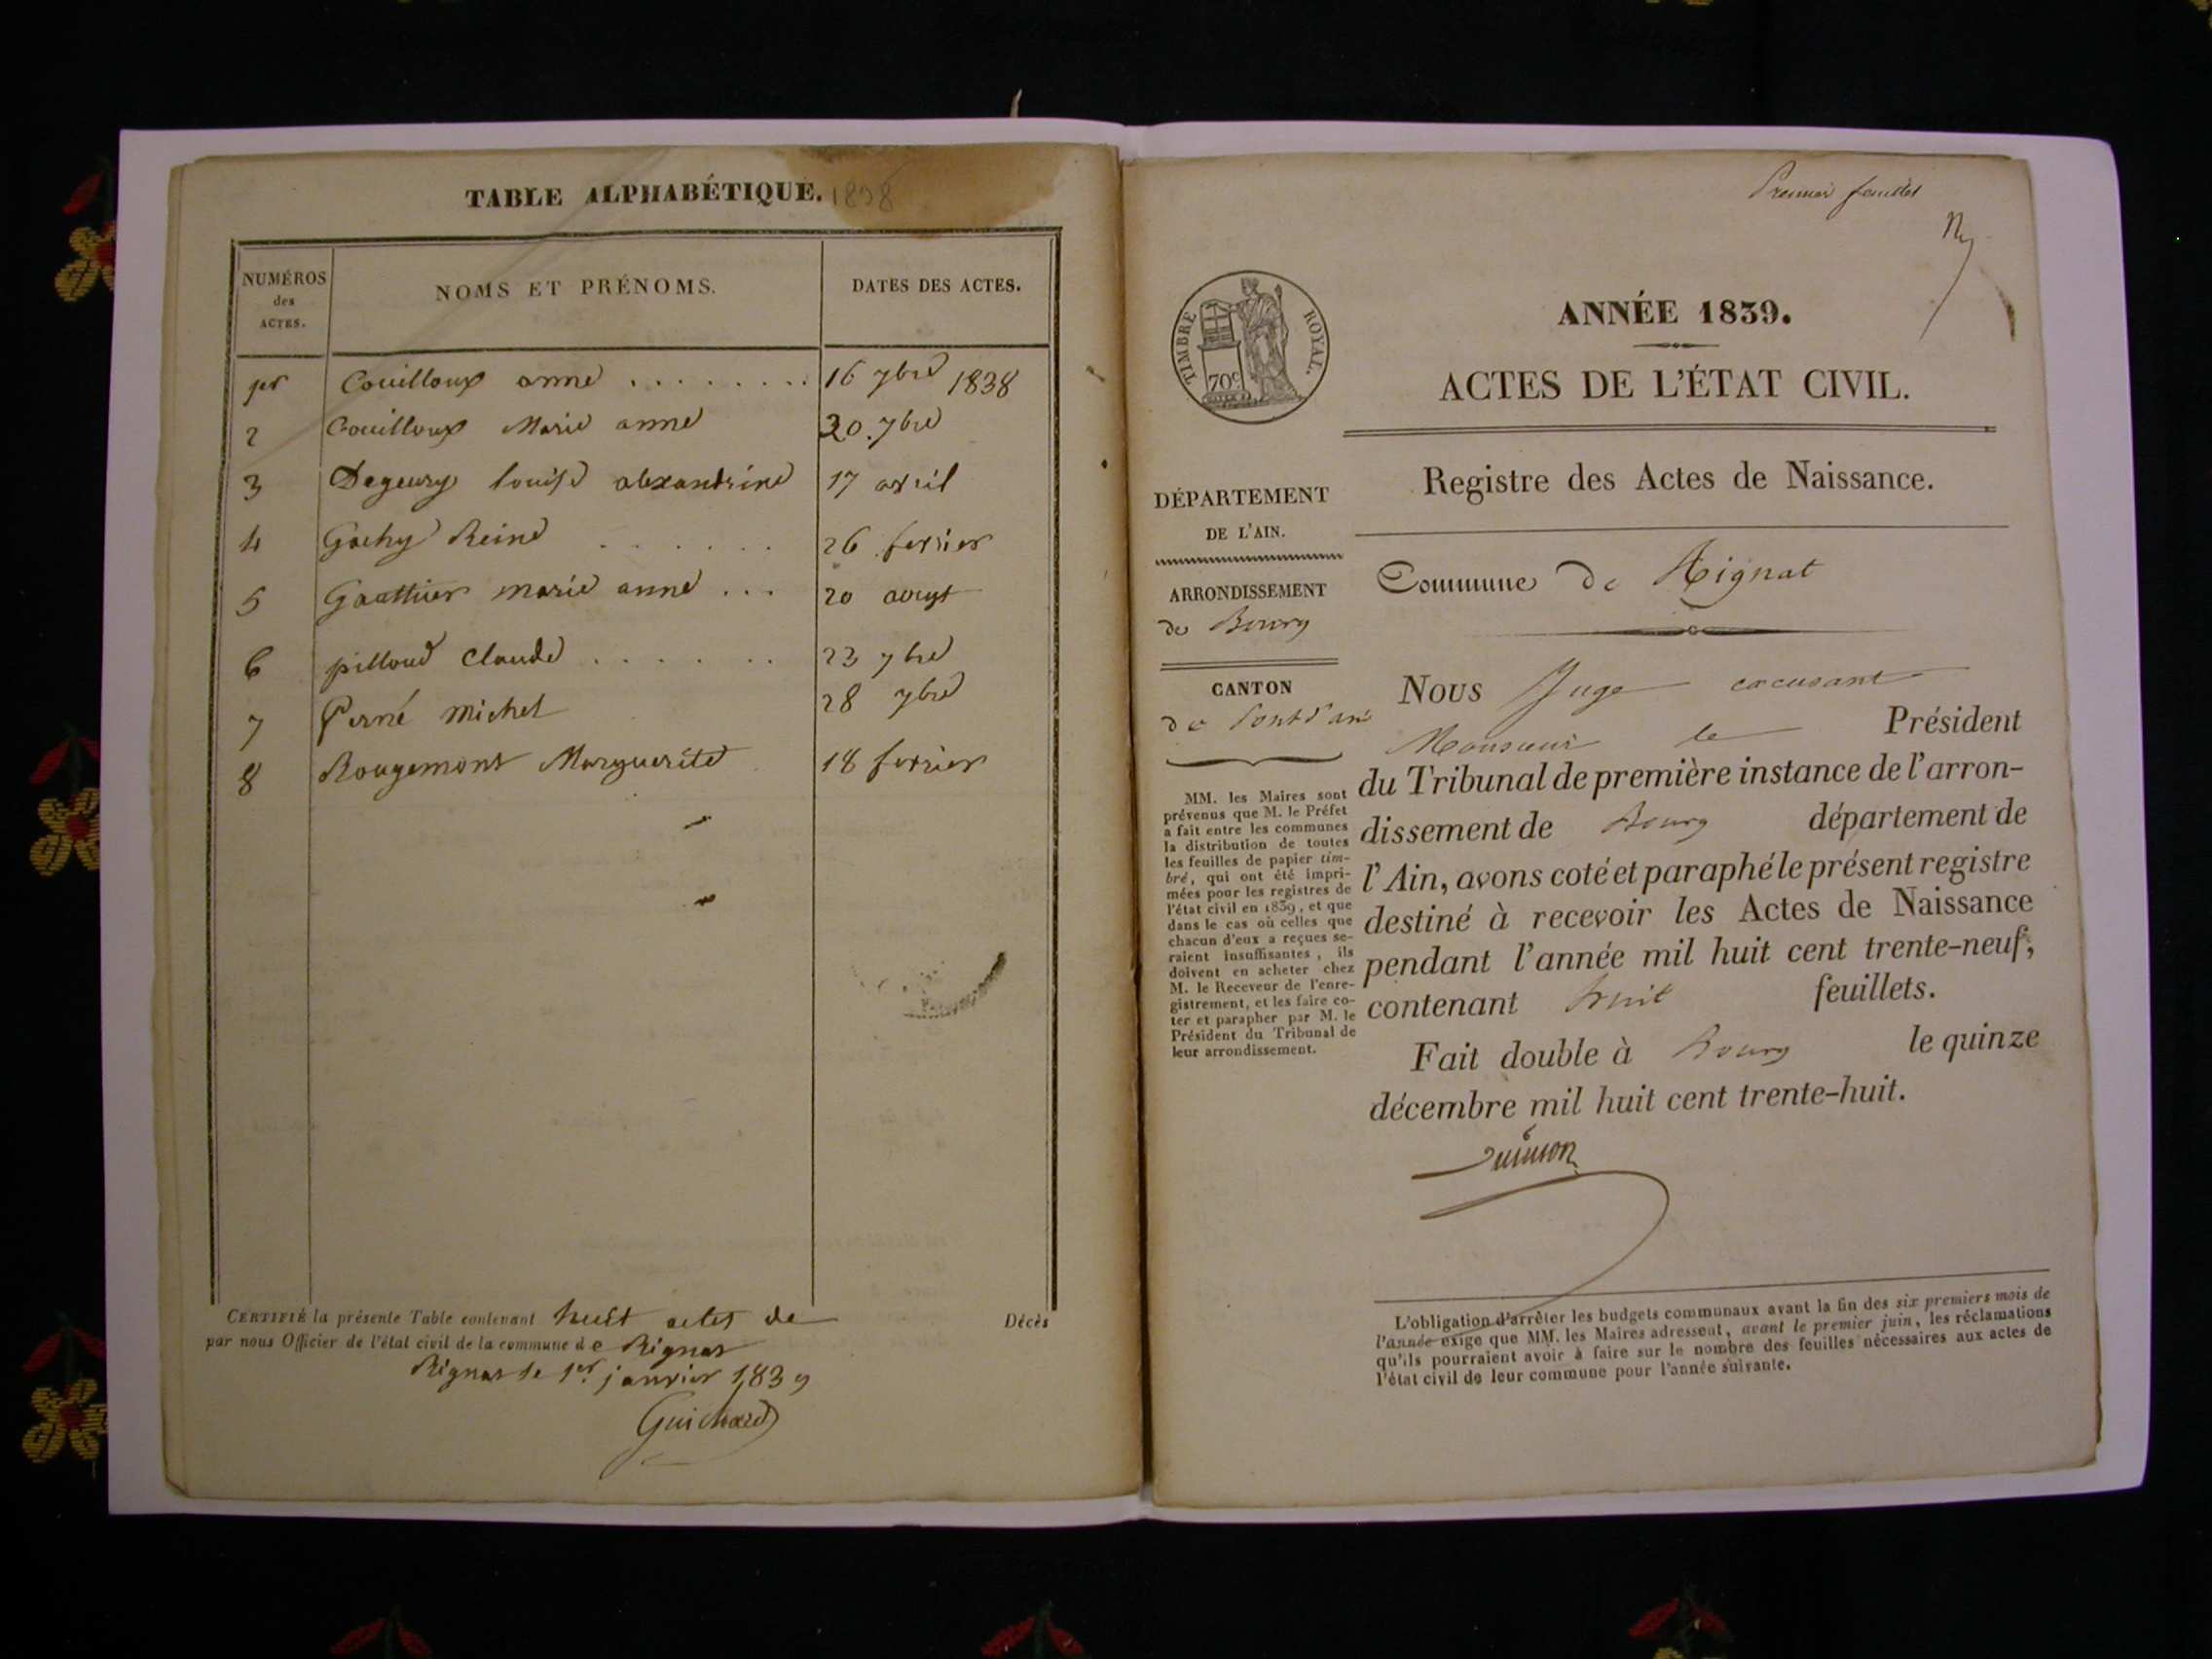 TABLE ALPHABÉTIQUE. 1838
NUMÉROS
des
ACTES.
NOMS ET PRÉNOMS.
DATES DES ACTES.
1er Couilloux anne ........ 16 7bre 1838
2 Couilloux Marie anne 30. 7bre
3 Degeury louise alexandrine 17 avril
4 Gachy Reine ...... 26 fevrier
5 Gaatthier marie anne ... 20 aougt
6 pilloud Claude ....... 23 7bre
7 Perné Michel 28 7bre
8 Rougemont Marguerite 18 fevrier
CERTIFIÉ la présente Table contenant huit actes de Décès
par nous Officier de l'état civil de la commune de Rignat
Rignat le 1er. janvier 1839
Guichard
Premier feuillet
TIMBRE ROYAL.
70c
ANNÉE 1839.
ACTES DE L'ÉTAT CIVIL.
Registre des Actes de Naissance.
DÉPARTEMENT
DE L'AIN.
ARRONDISSEMENT
de Bourg
CANTON
de Pont d'ain
MM. les Maires sont
prévenus que M. le Préfet
a fait entre les communes
la distribution de toutes
les feuilles de papier tim-
bré, qui ont été impri-
mées pour les registres de
l'état civil en 1839, et que
dans le cas où celles que
chacun d'eux a reçues se-
raient insuffisantes, ils
doivent en acheter chez
M. le Receveur de l'enre-
gistrement, et les faire co-
ter et parapher par M. le
Président du Tribunal de
leur arrondissement.
Commune de Rignat
Nous Juge excusant
Monsieur le Président
du Tribunal de première instance de l'arron-
dissement de Bourg département de
l'Ain, avons coté et paraphé le présent registre
destiné à recevoir les Actes de Naissance
pendant l'année mil huit cent trente-neuf,
contenant huit feuillets.
Fait double à Bourg le quinze
décembre mil huit cent trente-huit.
L'obligation d'arrêter les budgets communaux avant la fin des six premiers mois de
l'année exige que MM. les Maires adressent, avant le premier juin, les réclamations
qu'ils pourraient avoir à faire sur le nombre des feuilles nécessaires aux actes de
l'état civil de leur commune pour l'année suivante.